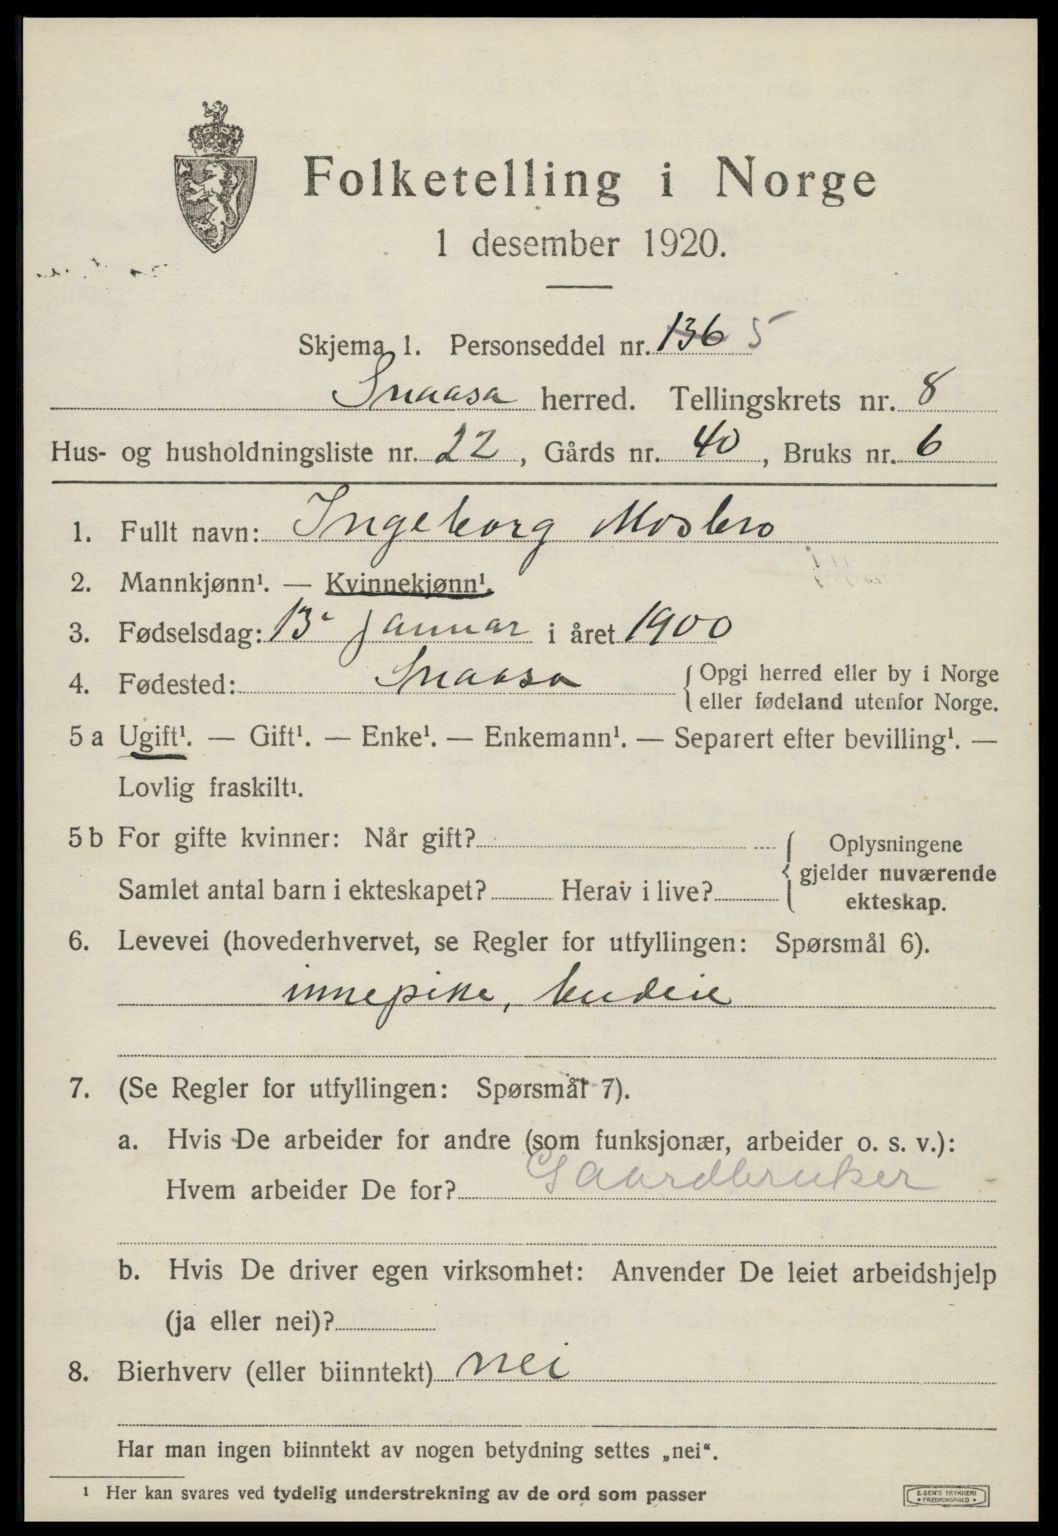 Folketelling i Norge
1 desember 1920.
Skjema 1. Personseddel nr. 136 5
Snaasa herred. Tellingskrets nr. 8
Hus- og husholdningsliste nr. 22, Gårds nr. 40, Bruks nr. 6
1. Fullt navn: Ingeborg Mosbro
2. Mannkjønn¹. — Kvinnekjønn¹.
3. Fødselsdag: 13 januar i året 1900
4. Fødested: Snaasa { Opgi herred eller by i Norge
eller fødeland utenfor Norge.
5 a Ugift¹. — Gift¹. — Enke¹. — Enkemann¹. — Separert efter bevilling¹. —
Lovlig fraskilt¹.
5 b For gifte kvinner: Når gift? { Oplysningene
gjelder nuværende
Samlet antal barn i ekteskapet? Herav i live? ekteskap.
6. Levevei (hovederhvervet, se Regler for utfyllingen: Spørsmål 6).
innepike, budeie
7. (Se Regler for utfyllingen: Spørsmål 7).
a. Hvis De arbeider for andre (som funksjonær, arbeider o. s. v.):
Hvem arbeider De for? Gaardbruker
b. Hvis De driver egen virksomhet: Anvender De leiet arbeidshjelp
(ja eller nei)?
8. Bierhverv (eller biinntekt) nei
Har man ingen biinntekt av nogen betydning settes „nei“.
¹ Her kan svares ved tydelig understrekning av de ord som passer
E. SEM'S TRYKKERI
FREDRIKSHALD